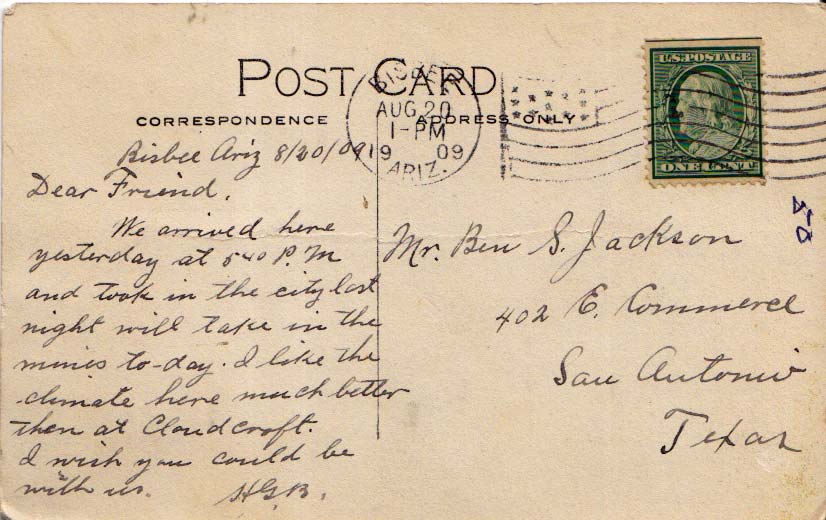 POST CARD
CORRESPONDENCE
ADDRESS ONLY
BISBEE
AUG 20
1-PM
1909
ARIZ.
U.S. POSTAGE
ONE CENT
Bisbee Ariz 8/20/09
Dear Friend,
We arrived here
yesterday at 540 P.M
and took in the city last
night will take in the
mines to-day. I like the
climate here much better
then at Cloudcroft.
I wish you could be
with us. HGB.
Mr. Ben S. Jackson
402 E. Commerce
San Antonio
Texas
50